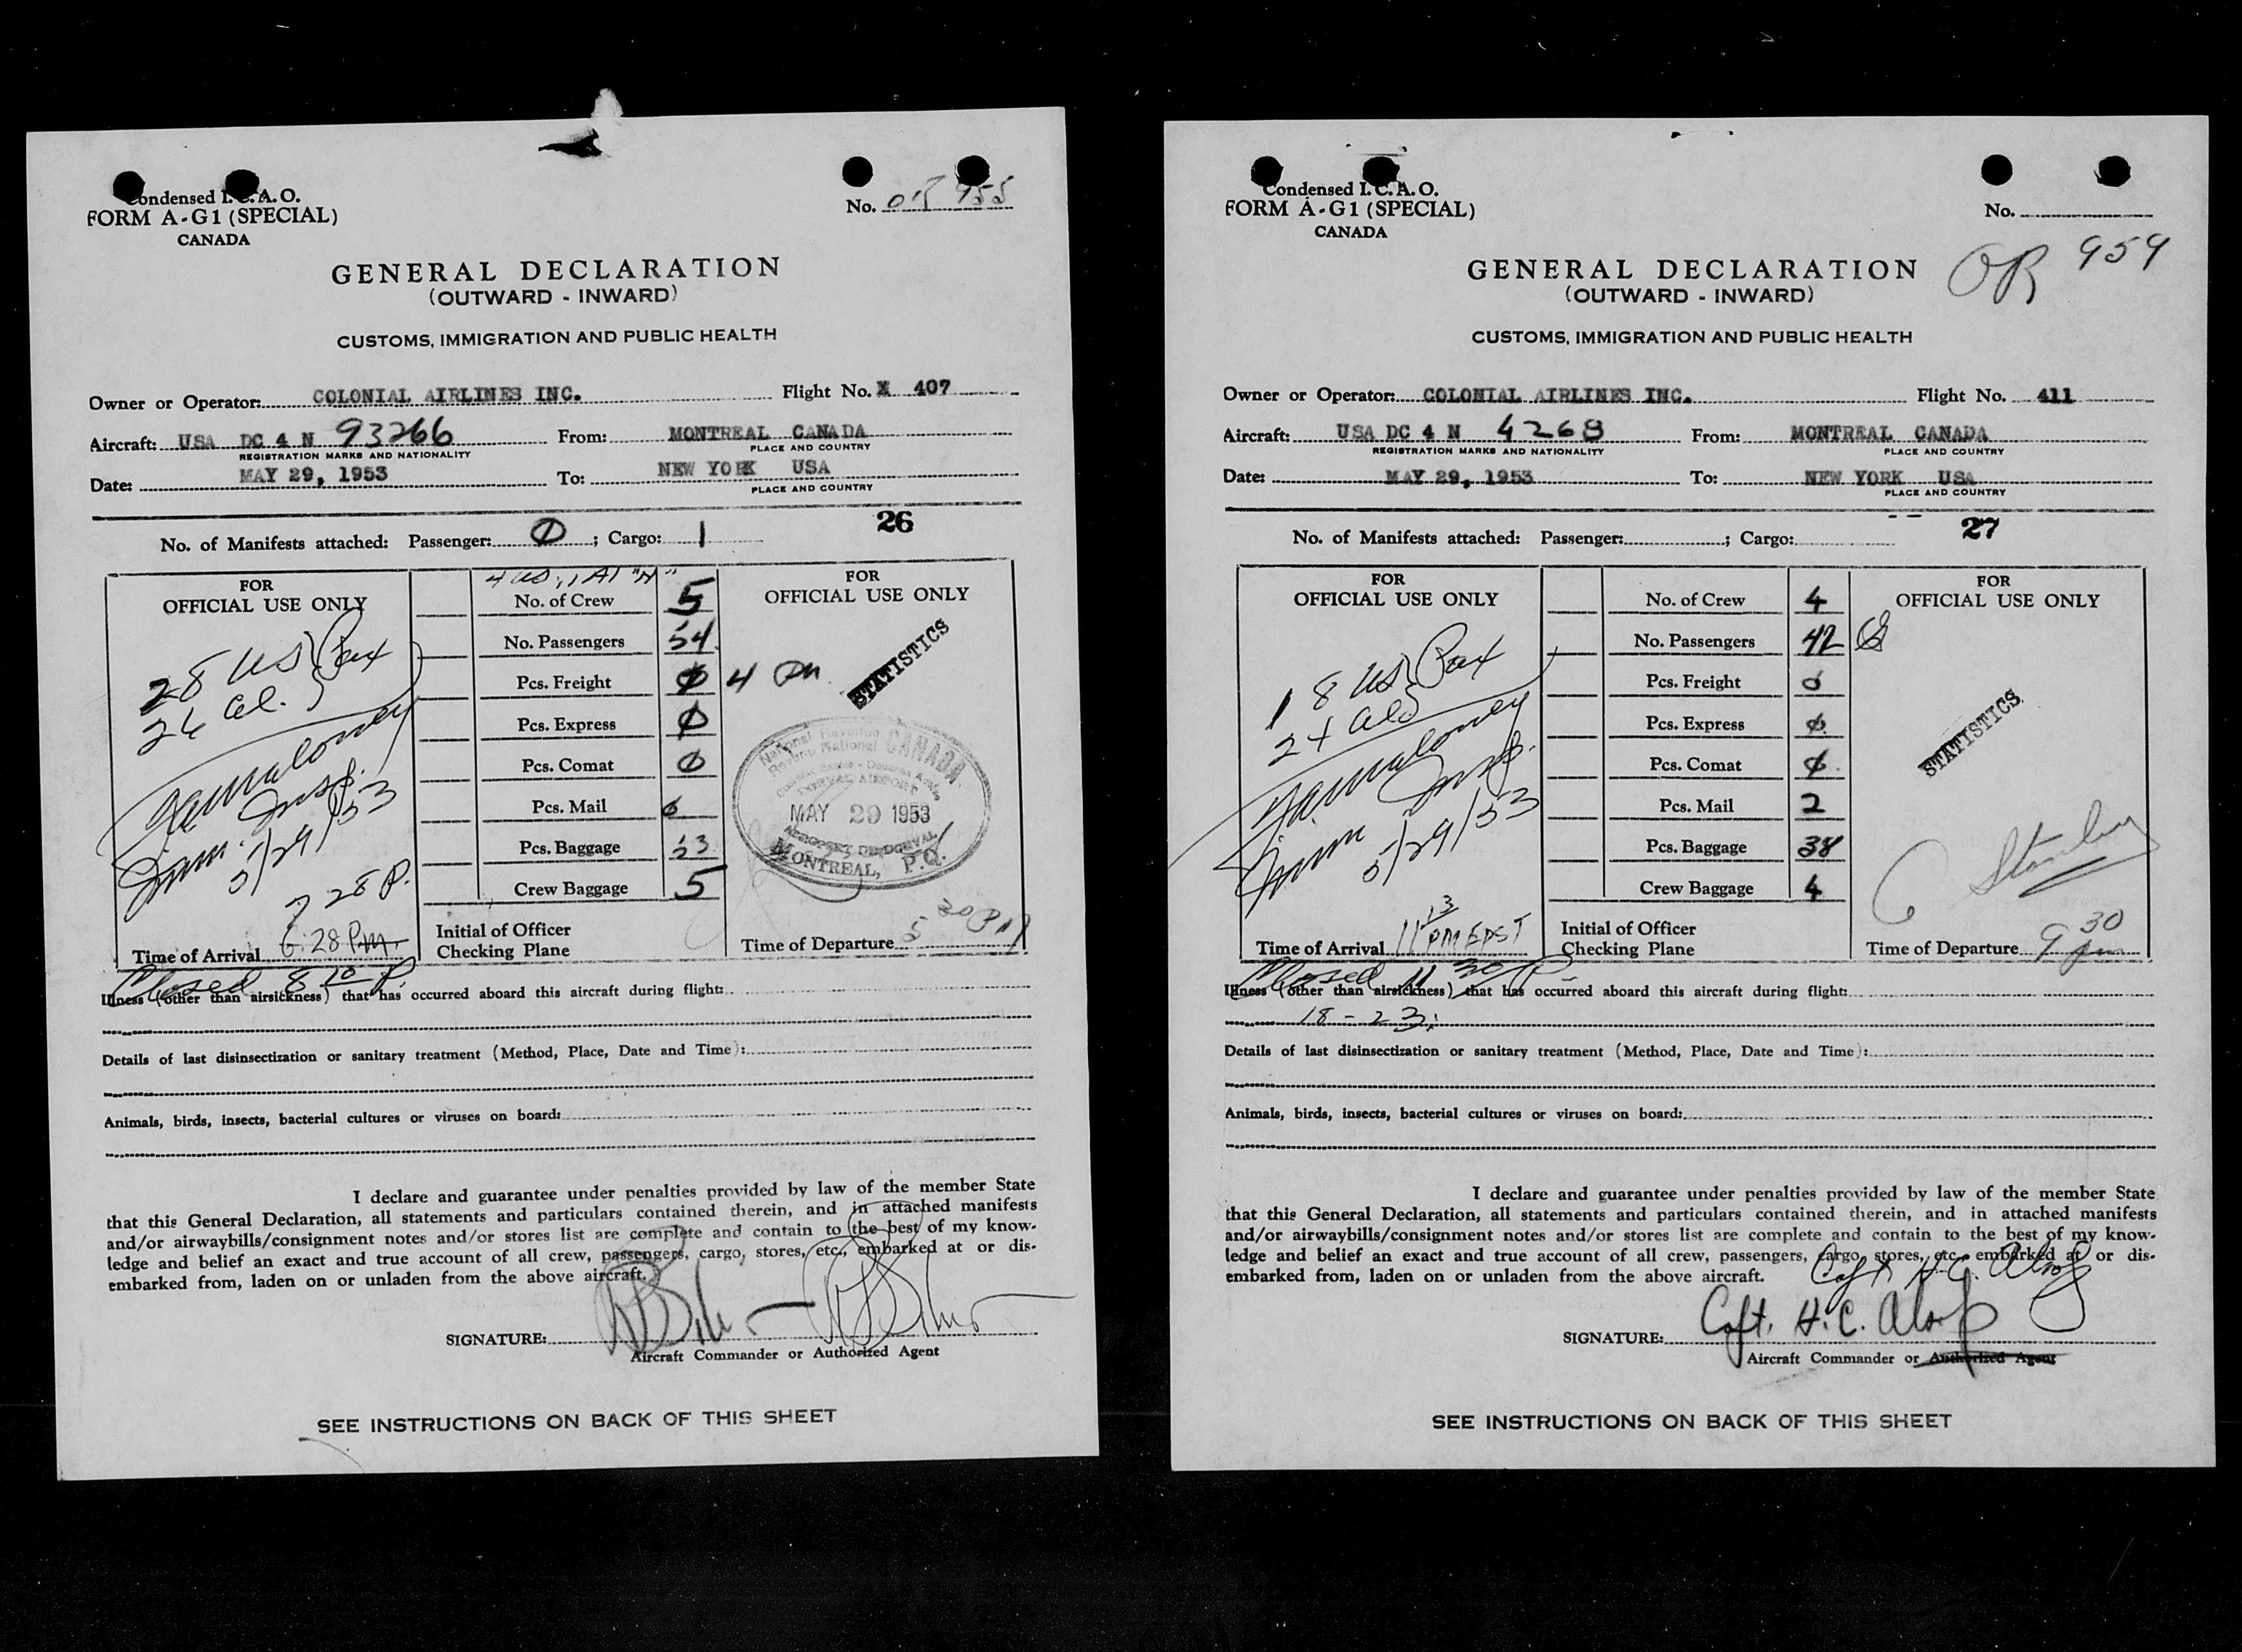 Condensed I.C.A.O.
FORM A-G1 (SPECIAL)
CANADA
No. 955
GENERAL DECLARATION
(OUTWARD - INWARD)
CUSTOMS, IMMIGRATION AND PUBLIC HEALTH
Owner or Operator: COLONIAL AIRLINES INC. Flight No. X 407
Aircraft: USA DC 4 N 93266 From: MONTREAL CANADA
REGISTRATION MARKS AND NATIONALITY PLACE AND COUNTRY
Date: MAY 29, 1953 To: NEW YORK USA
PLACE AND COUNTRY
26
No. of Manifests attached: Passenger: 0 ; Cargo: 1
FOR
OFFICIAL USE ONLY
28 US Pax
26 al.
Insp.
Imm. 5/29/53
7 28 P.
Time of Arrival 6:28 P.M.
No. of Crew 5
No. Passengers 54
Pcs. Freight 0
Pcs. Express 0
Pcs. Comat 0
Pcs. Mail 0
Pcs. Baggage 53
Crew Baggage 5
Initial of Officer
Checking Plane
FOR
OFFICIAL USE ONLY
STATISTICS
National Revenue CANADA
Revenu National
DORVAL AIRPORT
MAY 29 1953
AEROPORT DE DORVAL
MONTREAL, P.Q.
Time of Departure 5 30 PM
Closed 8 10 P.
Illness (other than airsickness) that has occurred aboard this aircraft during flight:
Details of last disinsectization or sanitary treatment (Method, Place, Date and Time):
Animals, birds, insects, bacterial cultures or viruses on board:
I declare and guarantee under penalties provided by law of the member State
that this General Declaration, all statements and particulars contained therein, and in attached manifests
and/or airwaybills/consignment notes and/or stores list are complete and contain to the best of my know-
ledge and belief an exact and true account of all crew, passengers, cargo, stores, etc., embarked at or dis-
embarked from, laden on or unladen from the above aircraft.
SIGNATURE:
Aircraft Commander or Authorized Agent
SEE INSTRUCTIONS ON BACK OF THIS SHEET
Condensed I.C.A.O.
FORM A-G1 (SPECIAL)
CANADA
No.
OR 959
GENERAL DECLARATION
(OUTWARD - INWARD)
CUSTOMS, IMMIGRATION AND PUBLIC HEALTH
Owner or Operator: COLONIAL AIRLINES INC. Flight No. 411
Aircraft: USA DC 4 N 4268 From: MONTREAL CANADA
REGISTRATION MARKS AND NATIONALITY PLACE AND COUNTRY
Date: MAY 29, 1953 To: NEW YORK USA
PLACE AND COUNTRY
27
No. of Manifests attached: Passenger: ; Cargo:
FOR
OFFICIAL USE ONLY
18 US Pax
24 als
Insp.
Imm 5/29/53
Time of Arrival 11 13 PM EDST
No. of Crew 4
No. Passengers 42
Pcs. Freight 0
Pcs. Express 0
Pcs. Comat 0
Pcs. Mail 2
Pcs. Baggage 38
Crew Baggage 4
Initial of Officer
Checking Plane
FOR
OFFICIAL USE ONLY
STATISTICS
Time of Departure 9 30 pm
Closed 11 30 P
Illness (other than airsickness) that has occurred aboard this aircraft during flight:
18 - 23;
Details of last disinsectization or sanitary treatment (Method, Place, Date and Time):
Animals, birds, insects, bacterial cultures or viruses on board:
I declare and guarantee under penalties provided by law of the member State
that this General Declaration, all statements and particulars contained therein, and in attached manifests
and/or airwaybills/consignment notes and/or stores list are complete and contain to the best of my know-
ledge and belief an exact and true account of all crew, passengers, cargo, stores, etc., embarked at or dis-
embarked from, laden on or unladen from the above aircraft.
Capt H.C. Alsop
SIGNATURE: Capt. H.C. Alsop
Aircraft Commander or Authorized Agent
SEE INSTRUCTIONS ON BACK OF THIS SHEET